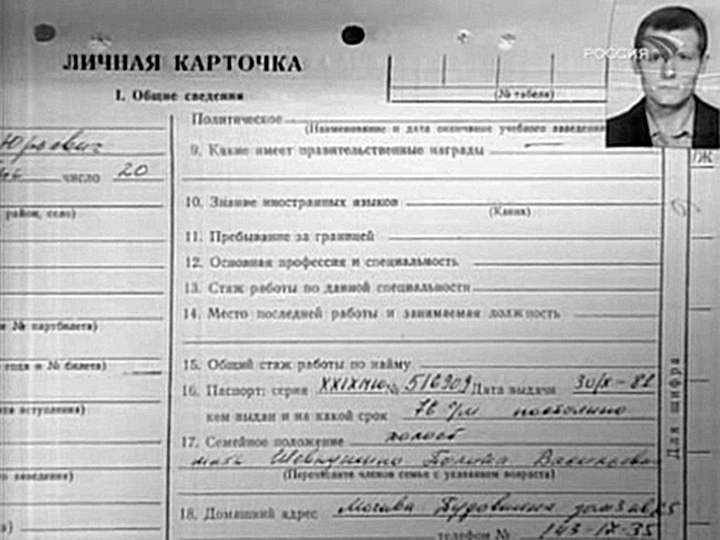 РОССИЯ
ЛИЧНАЯ КАРТОЧКА
I. Общие сведения
(№ табеля)
Юрьевич
число 20
район, село)
и № партбилета)
года и № билета)
вступления)
заведения)
Политическое
(Наименование и дата окончания учебного заведения
9. Какие имеет правительственные награды
10. Знание иностранных языков
(Каких)
11. Пребывание за границей
12. Основная профессия и специальность
13. Стаж работы по данной специальности
14. Место последней работы и занимаемая должность
15. Общий стаж работы по найму
16. Паспорт: серия XXIXМЮ № 516909 Дата выдачи 30/X-82
кем выдан и на какой срок 76 о/м
17. Семейное положение холост
мать Васильевна
(Перечислите членов семьи с указанием возраста)
18. Домашний адрес Москва дом 3 кв 25
телефон № 143-17-35
/Ж
Для шифра